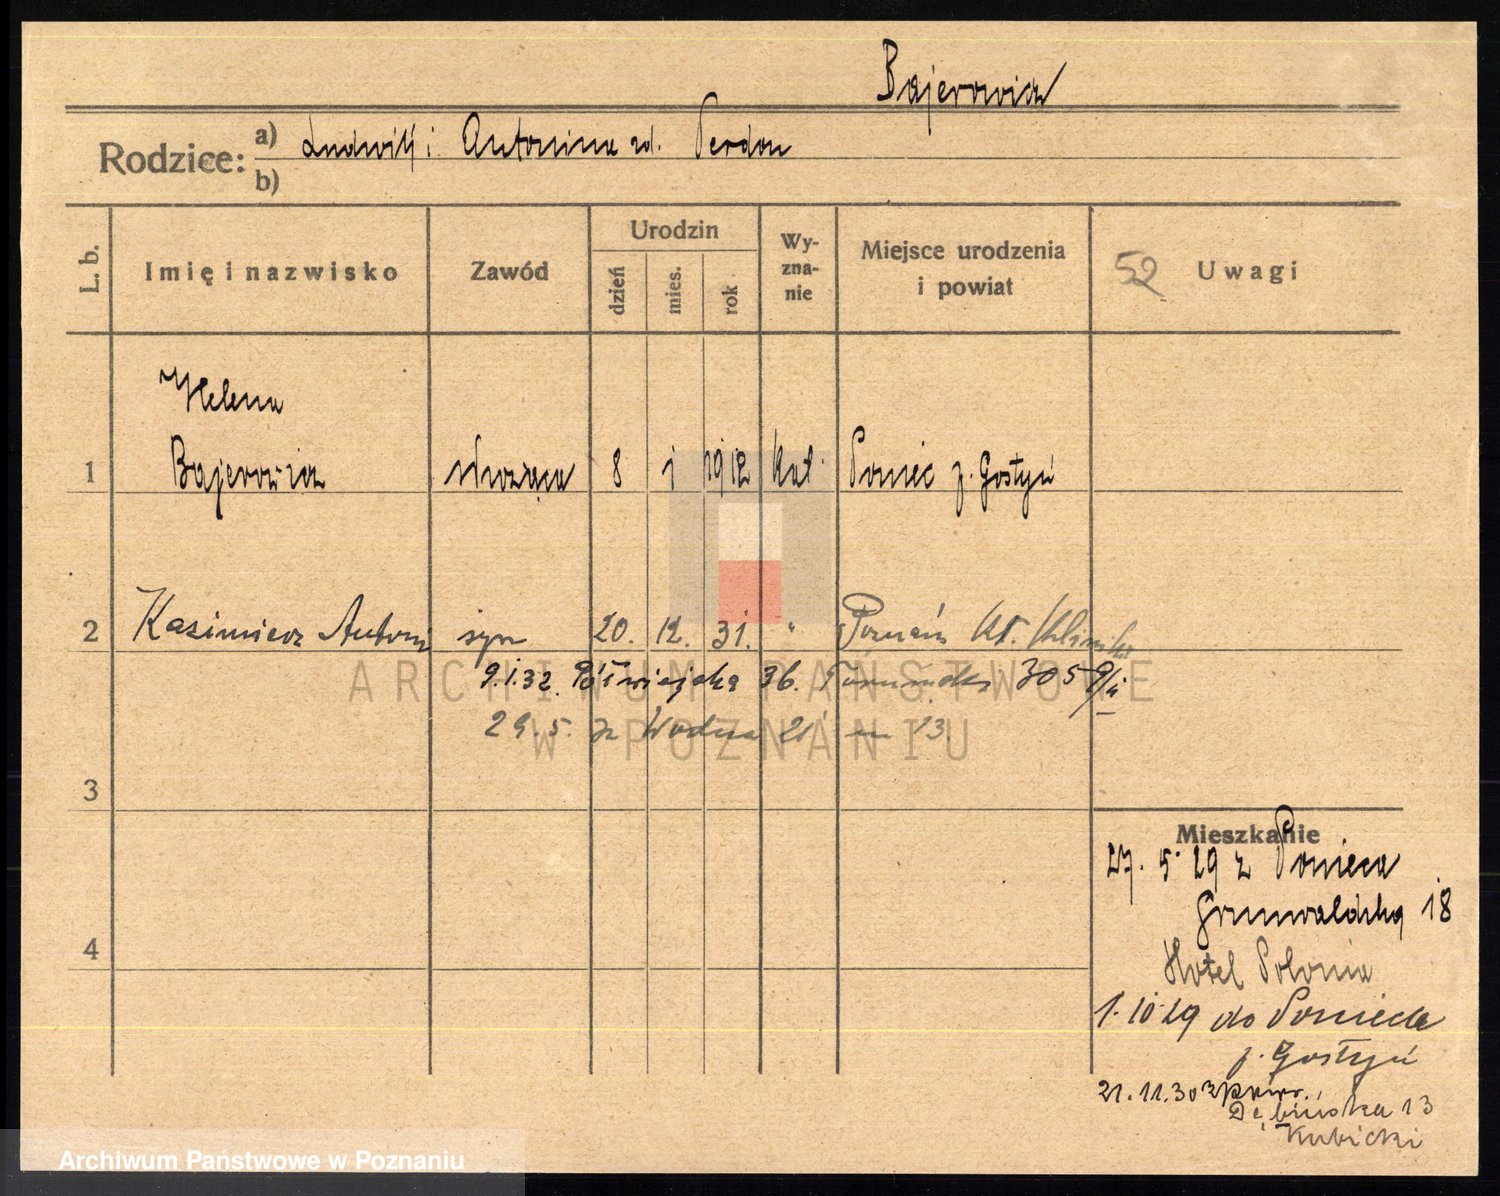 Bajerowicz
Rodzice: a) Ludwik i Antonina zd. Perdon
b)
L. b. Imię i nazwisko Zawód Urodzin dzień mies. rok Wyzna-nie Miejsce urodzenia i powiat 52 Uwagi
Helena
1 Bajerowicz służąca 8 1 1912 kat. Poniec p. Gostyń
2 Kazimierz Antoni syn 20. 12. 31. " Poznań Kl.
9.1.32. Półwiejska 36. 3059/II
29. 5. Wodna 21 m 13.
3
Mieszkanie
27. 5. 29 z Ponieca
Grunwaldzka 18
4
Hotel Polonia
1. 10 29 do Ponieca
p. Gostyń
21. 11. 30
Dębińska 13
Kubicki
ARCHIWUM PAŃSTWOWE
W POZNANIU
Archiwum Państwowe w Poznaniu